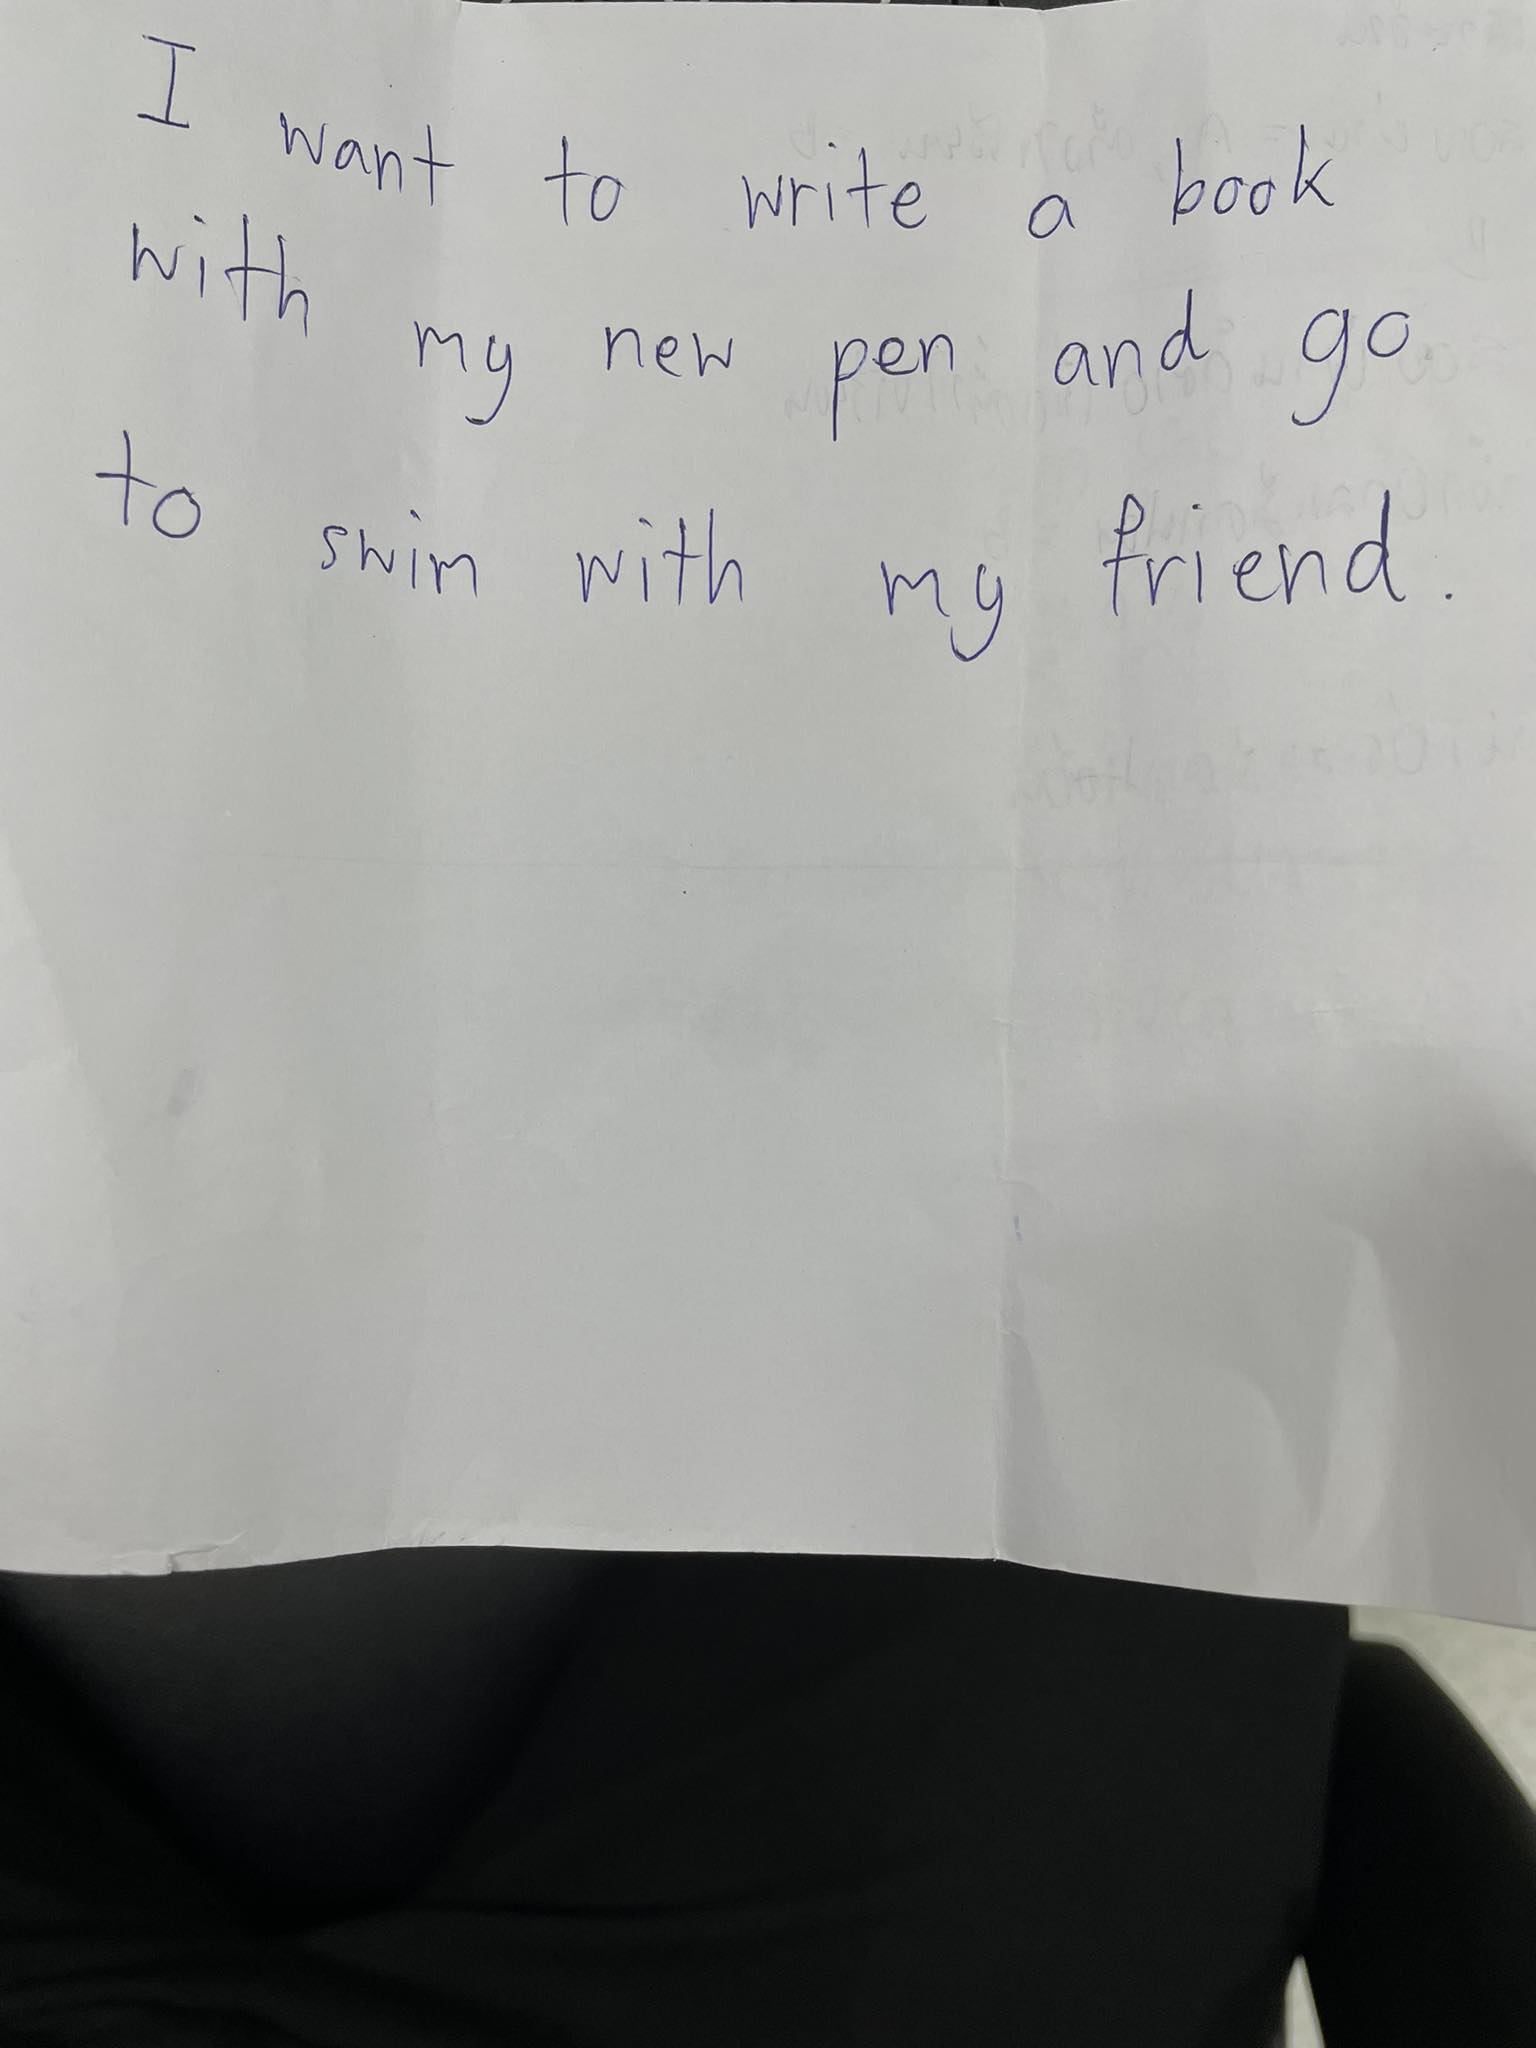 I want to write a book
with my new pen and go
to swim with my friend.